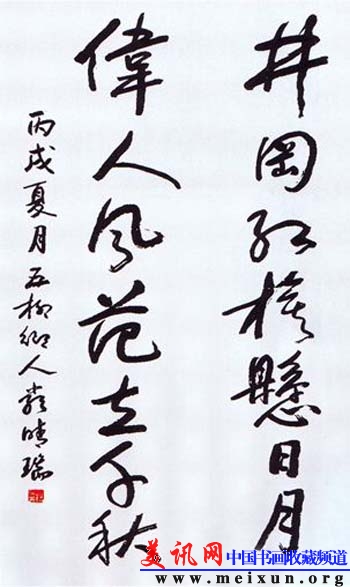 井岡紅旗懸日月
偉人风范立千秋
丙戌夏月五柳鄉人
美讯网 中国书画收藏频道
www.meixun.org